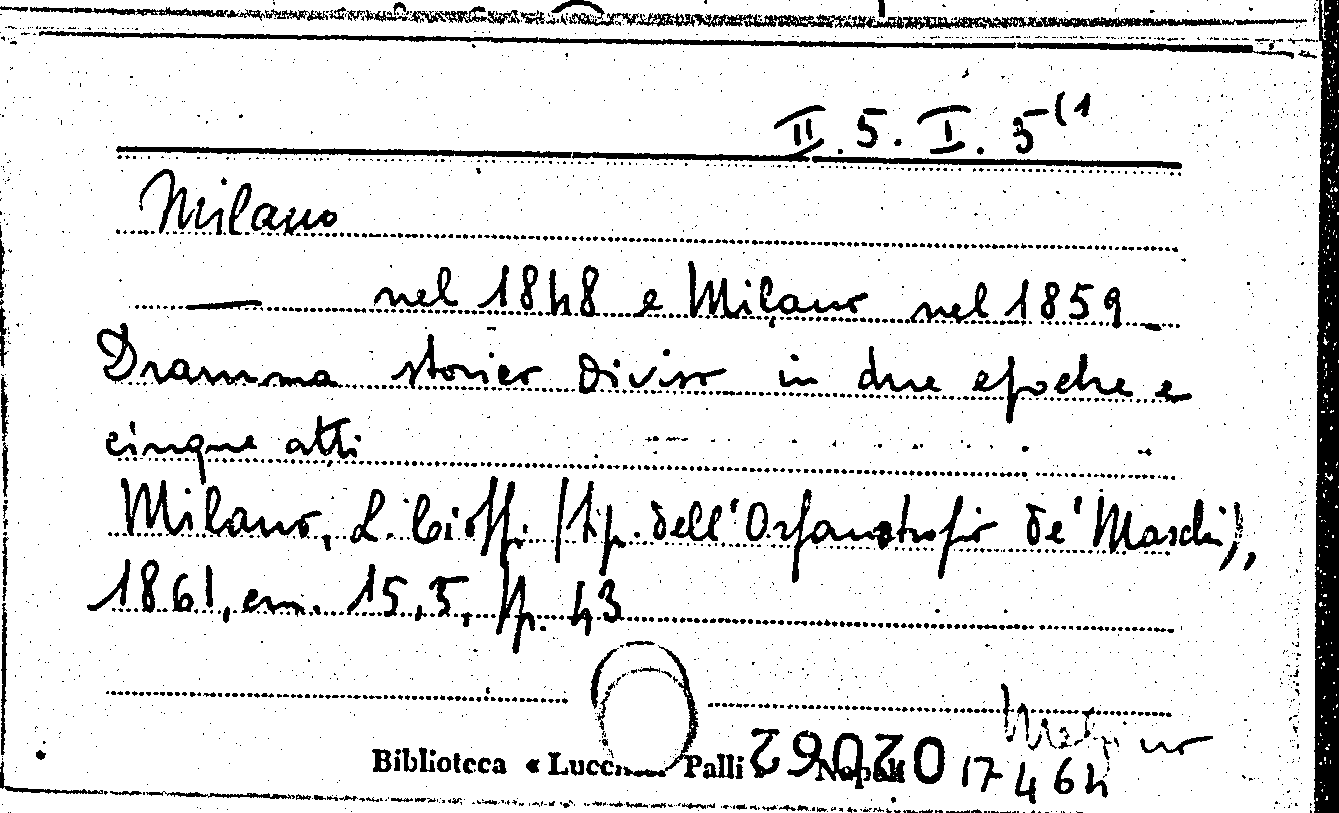 II. 5. I. 5(1
Milano
— nel 1848 e Milano nel 1859 _
Dramma storico diviso in due epoche e
cinque atti
Milano, L. Cioffi (tip. dell'Orfanotrofio de' Maschi),
1861, cm. 15,5, pp. 43
Biblioteca « Lucchesi Palli » Napoli 029062
17 464